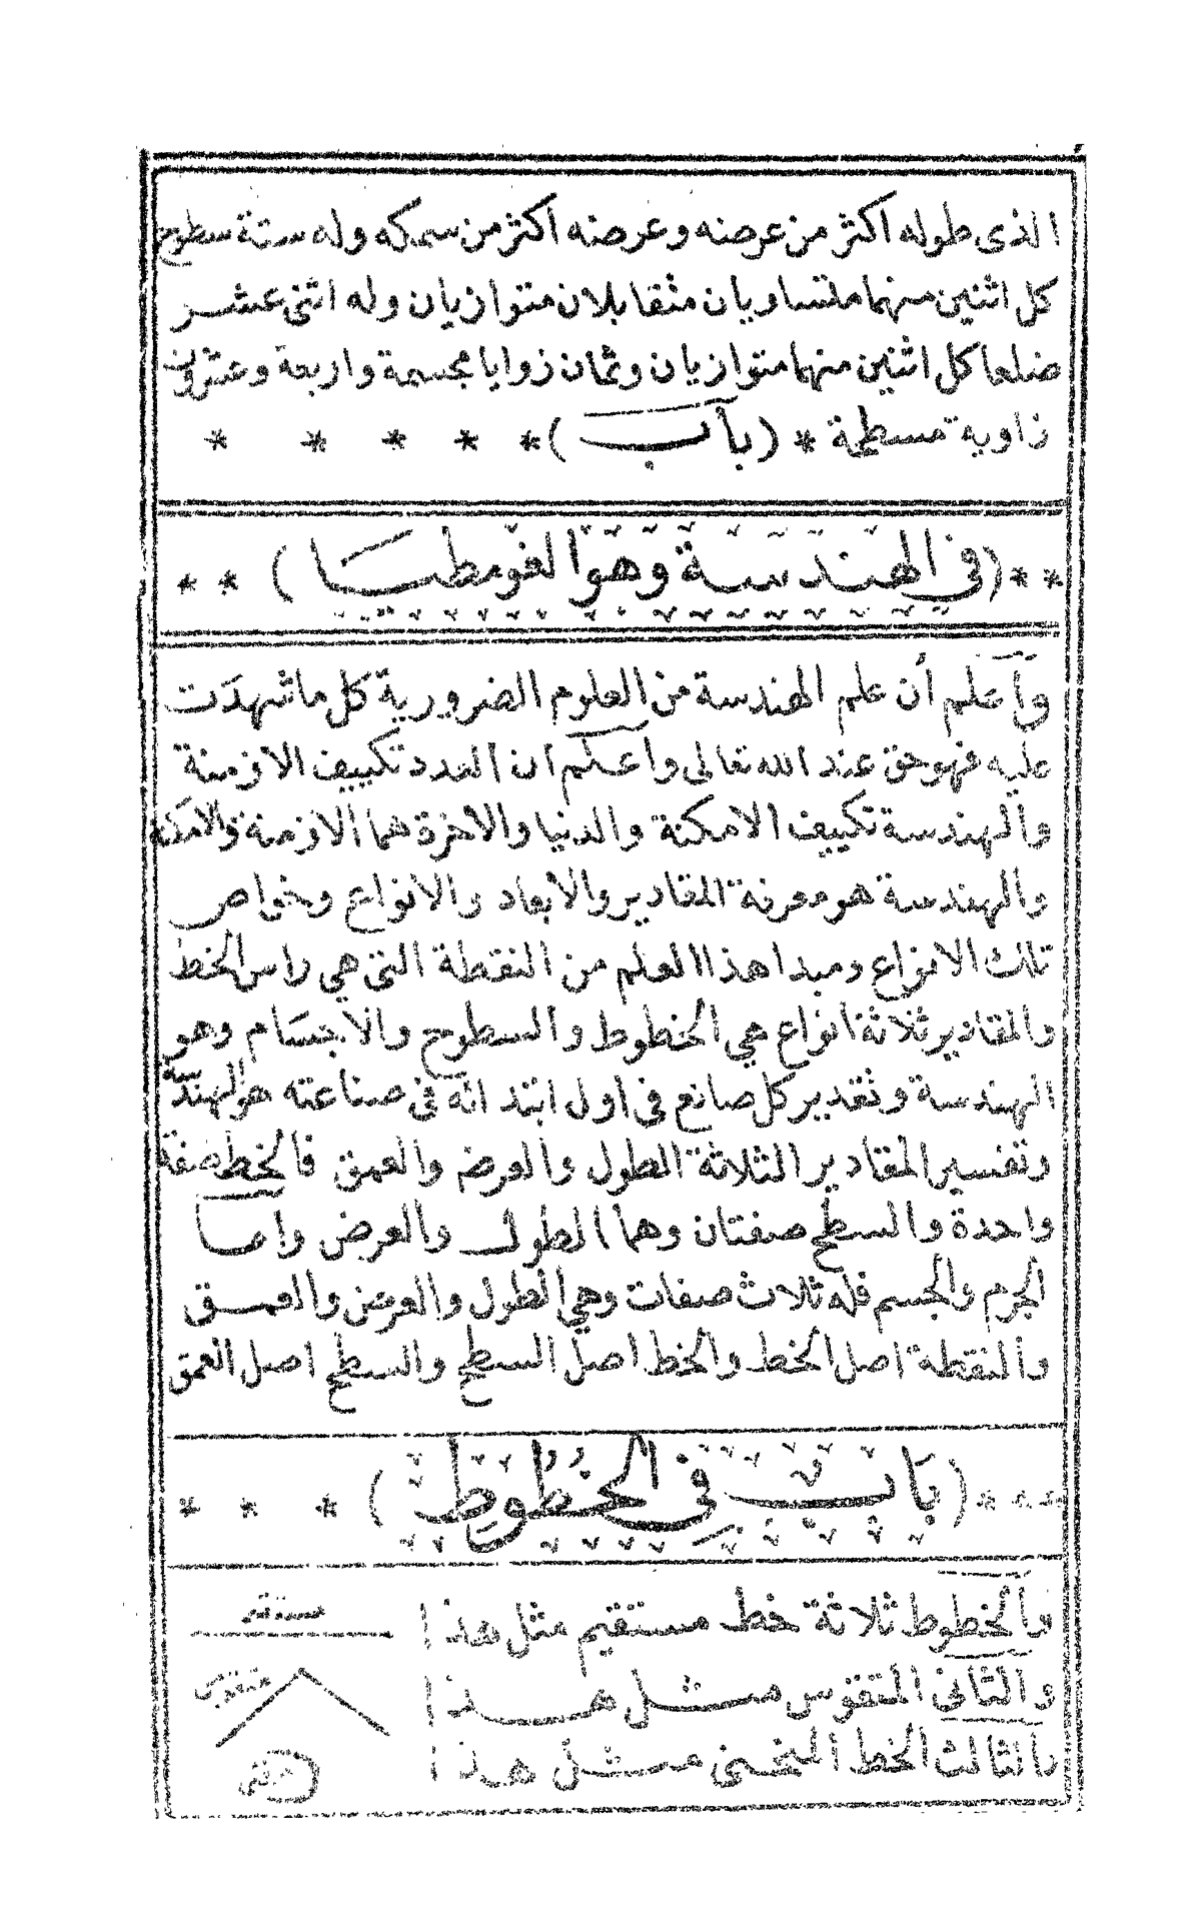 الذى طوله اكثر من عرضه وعرضه اكثر من سمكه وله ستة سطوح
كل اثنين منهما متساويان متقابلان متوازيان وله اثنى عشر
ضلعا كل اثنين منهما متوازيان وثمان زوايا مجسمة واربعة وعشرون
زاوية مسطحة * (باب) * * * * *
* * (في الهندسة وهو الغومطيا) * *
وأعلم أن علم الهندسة من العلوم الضرورية كل ما شهدت
عليه فهو حق عند الله تعالى وأعلم ان العدد تكييف الازمنة
والهندسة تكييف الامكنة والدنيا والاخرة هما الازمنة والامكنة
والهندسة هو معرفة المقادير والابعاد والانواع وخواص
تلك الانواع ومبدا هذا العلم من النقطة التى هي راس الخط
والمقادير ثلاثة انواع هي الخطوط والسطوح والاجسام وهو
الهندسة وتقدير كل صانع فى اول ابتدائه فى صناعته هو الهندسة
وتفسير المقادير الثلاثة الطول والعرض والعمق فالخط صفة
واحدة والسطح صفتان وهما الطول والعرض واما
الجرم والجسم فله ثلاث صفات وهي الطول والعرض والعمق
والنقطة اصل الخط والخط اصل السطح والسطح اصل العمق
* * * (باب فى الخطوط) * * *
والخطوط ثلاثة خط مستقيم مثل هذا
مستقيم
والثانى المتقوس مثل هذا
متقوس
والثالث الخط المنحنى مثل هذا